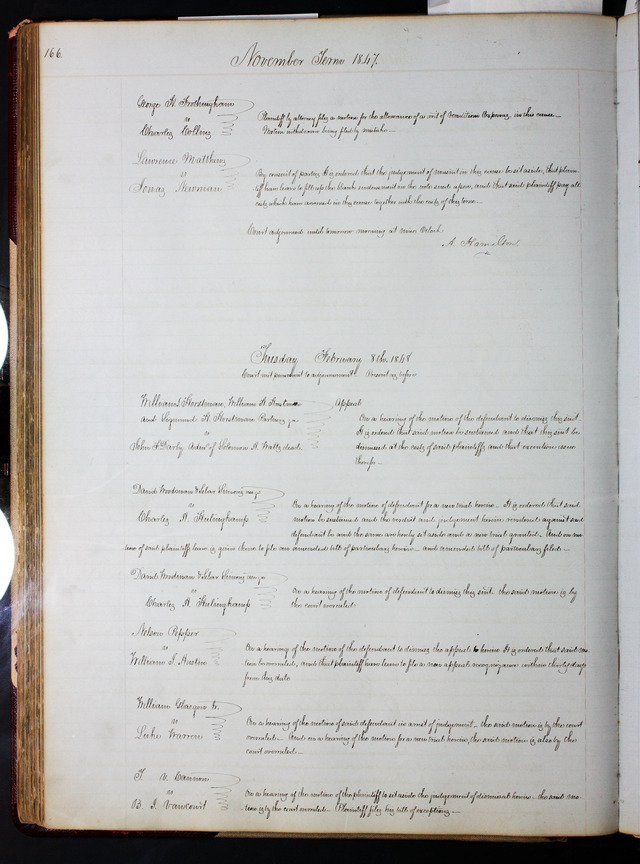 166.
November Term 1847.
George H. Frothingham
vs
Charles Collins
Plaintiff by attorney files a motion for the allowance of a writ of Venditioni Exponas in this cause.
Motion withdrawn being filed by mistake.
Lawrence Matthews
vs
Jonas Newman
By consent of parties it is ordered that the judgement of nonsuit in this cause be set aside, that plain-
tiff have leave to fill up the blank endorsement on the note sued upon, and that said plaintiff pay all
costs which have accrued in this cause together with the costs of this term.
Court adjourned until tomorrow morning at nine Oclock.
A. Hamilton
Tuesday February 8th 1848
Court met pursuant to adjournment. Present as before
William Horstman, William H.
and Sigmund H. Horstman Partners &c
vs
John F. Darby Admr of Solomon P. Watts decd.
Appeal
On a hearing of the motion of the defendant to dismiss this suit.
It is ordered that said motion be sustained and that this suit be
dismissed at the costs of said plaintiffs and that execution issue
therefor.
David Woodman &
vs
Charles A.
On a hearing of the motion of defendant for a new trial herein. It is ordered that said
motion be sustained and the verdict and judgement herein rendered against said
defendant be and the same are hereby set aside and a new trial granted. And on mo-
tion of said plaintiffs leave is given them to file an amended bill of particulars herein. and amended bill of particulars filed.
David Woodman &
vs
Charles A.
On a hearing of the motion of defendant to dismiss this suit. the said motion is by
the court overruled.
Nelson Pepper
vs
William S. Austin
On a hearing of the motion of the defendant to dismiss the appeal herein It is ordered that said mo-
tion be overruled, and that plaintiff have leave to file a new appeal recognizance within thirty days
from this date.
William Glasgow Jr.
vs
Luke Warren
On a hearing of the motion of said defendant in arrest of judgement. the said motion is by the court
overruled. And on a hearing of the motion for a new trial herein, the said motion is also by the
court overruled.
T. V. Cannon
vs
B. A. Vancourt
On a hearing of the motion of the plaintiff to set aside the judgement of dismissal herein. the said mo-
tion is by the court overruled. Plaintiff files his bill of exceptions.